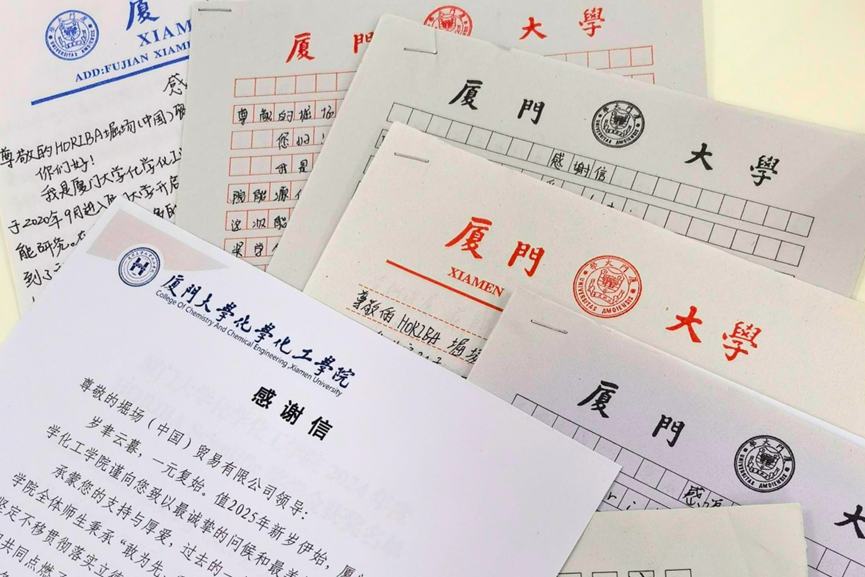 厦
XIAM
ADD:FUJIAN XIAME
感
尊敬的HORIBA堀场(中国)
你们好!
我是厦门大学化学化工
于2020年9月进入厦门大学开启
能研究。
到了
厦 門 大 學
UNIVERSITAS AMOIENSIS
尊敬的堀场
您好
我是
院能源
这次
厦 門 大 學
UNIVERSITAS AMOIENSIS
感谢信
厦 門 大 學
XIAMEN
UNIVERSITAS AMOIENSIS
尊敬的 HORIBA 堀场
厦 門 大
UNIVERSITAS AMOIENSIS
感谢
厦門大學化學化工學院
College Of Chemistry And Chemical Engineering ,Xiamen University
感谢信
尊敬的堀场(中国)贸易有限公司领导:
岁聿云暮,一元复始。值2025年新岁伊始,厦
学化工学院谨向您致以最诚挚的问候和最美
承蒙您的支持与厚爱,过去的一
学院全体师生秉承“敢为先、
坚定不移贯彻落实立德
共同点燃了